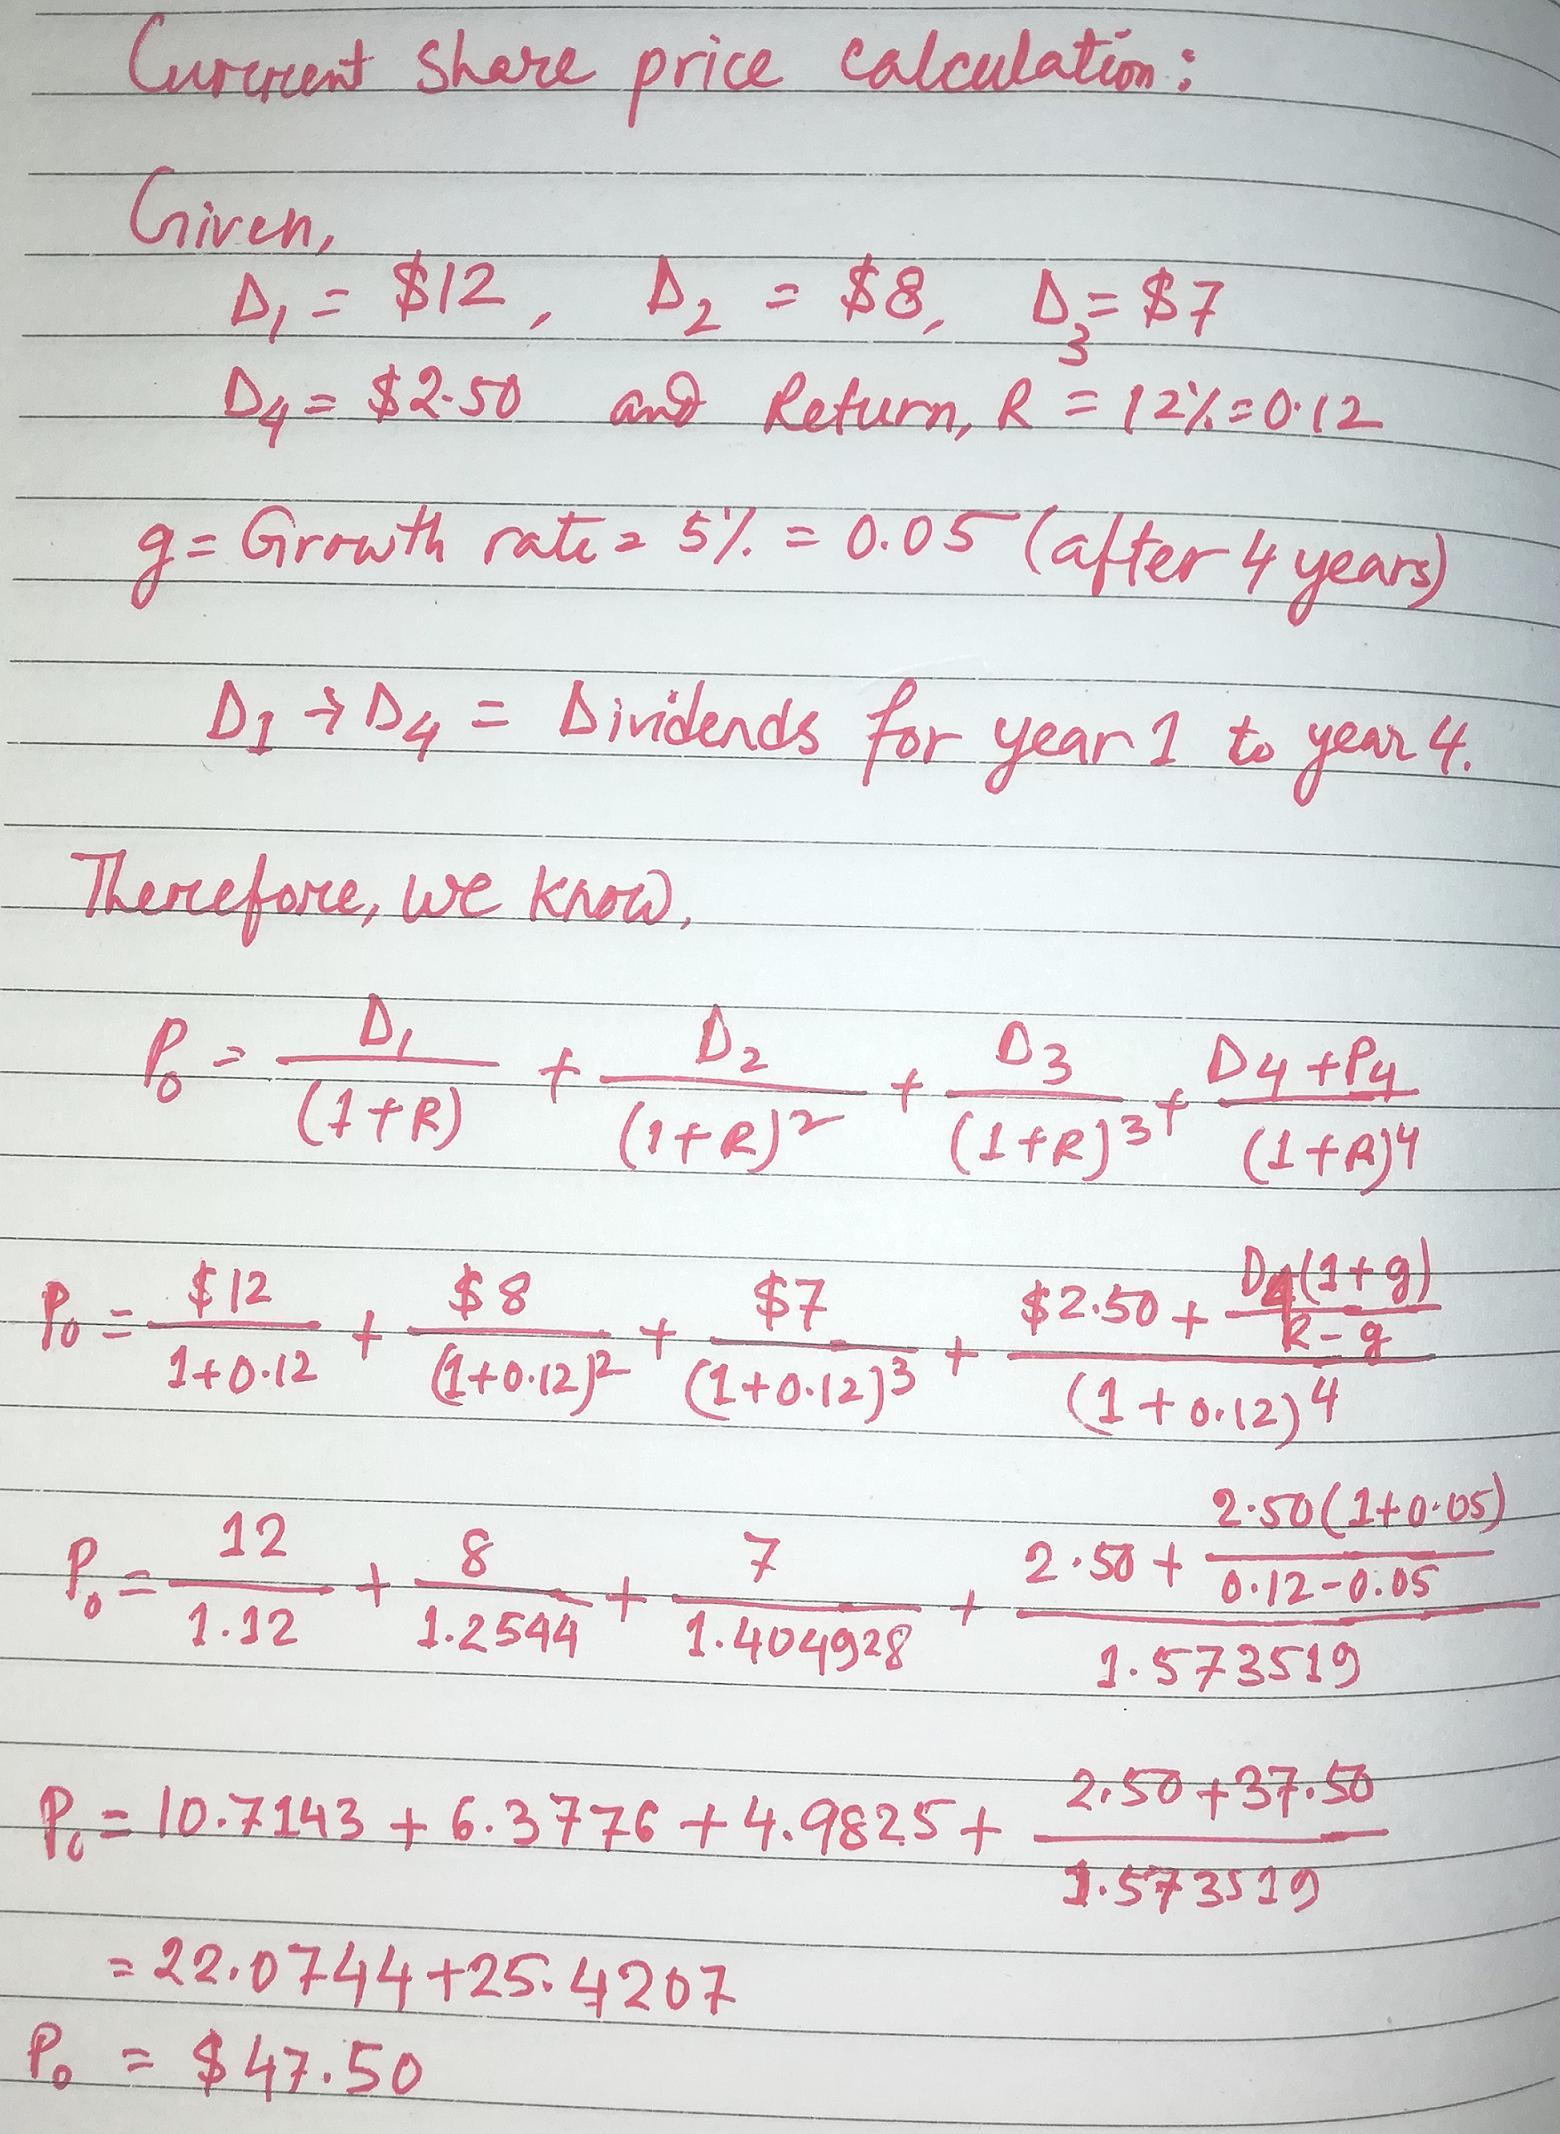 Current share price calculation:
Given,
D₁ = $12, D₂ = $8, D₃ = $7
D₄ = $2.50 and Return, R = 12% = 0.12
g = Growth rate = 5% = 0.05 (after 4 years)
D₁ → D₄ = Dividends for year 1 to year 4.
Therefore, we know,
P₀ = D₁/(1+R) + D₂/(1+R)² + D₃/(1+R)³ + (D₄+P₄)/(1+R)⁴
P₀ = $12/(1+0.12) + $8/(1+0.12)² + $7/(1+0.12)³ + ($2.50 + D₄(1+g)/(R-g))/(1+0.12)⁴
P₀ = 12/1.12 + 8/1.2544 + 7/1.404928 + (2.50 + 2.50(1+0.05)/(0.12-0.05))/1.573519
P₀ = 10.7143 + 6.3776 + 4.9825 + (2.50+37.50)/1.573519
= 22.0744+25.4207
P₀ = $47.50